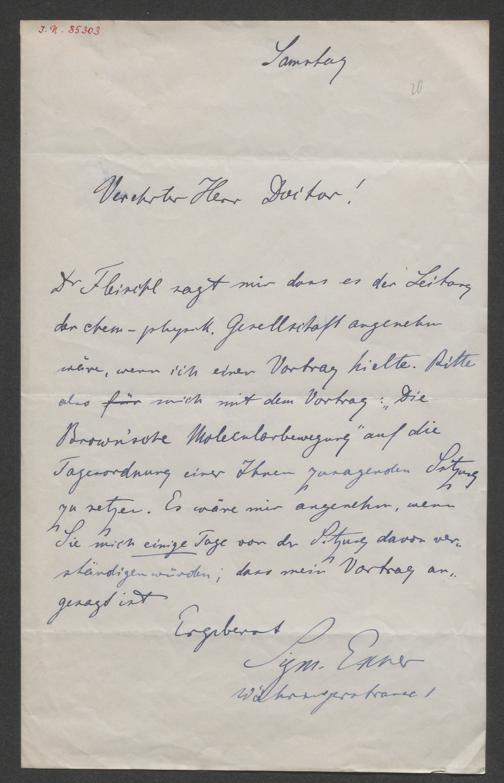 I.N. 85303
Samstag
20
Verehrter Herr Doctor!
Dr Fleischl sagt mir dass es der Leitung
der chem-physik. Gesellschaft angenehm
wäre, wenn ich einen Vortrag hielte. Bitte
also für mich mit dem Vortrag: „Die
Brown'sche Molecularbewegung" auf die
Tagesordnung einer Ihnen zusagenden Sitzung
zu setzen. Es wäre mir angenehm, wenn
Sie mich einige Tage vor der Sitzung davon ver-
ständigen würden, dass mein Vortrag an-
gesagt ist
Ergebenst
Sigm. Exner
Währingerstrasse 1